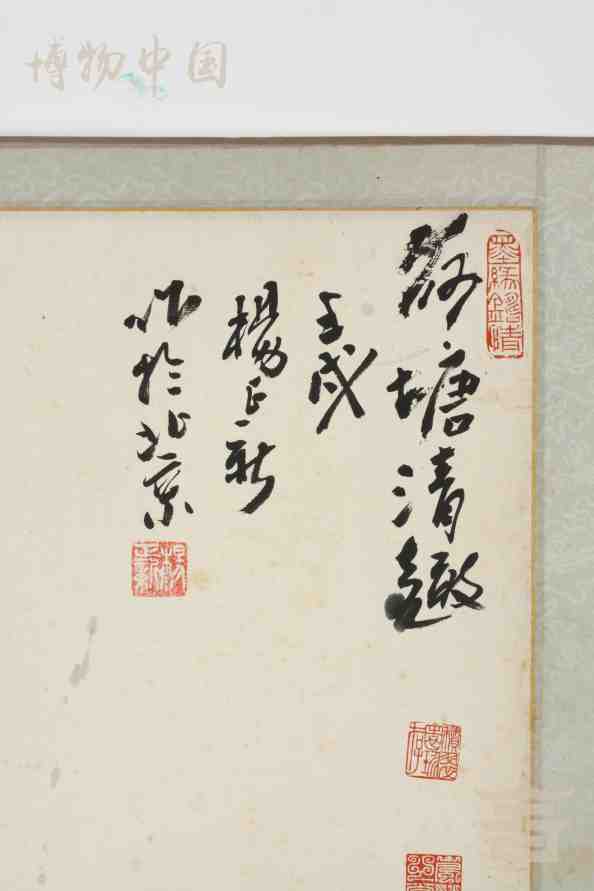 博物中国
荷塘清趣
壬戌
杨正新
作於北京